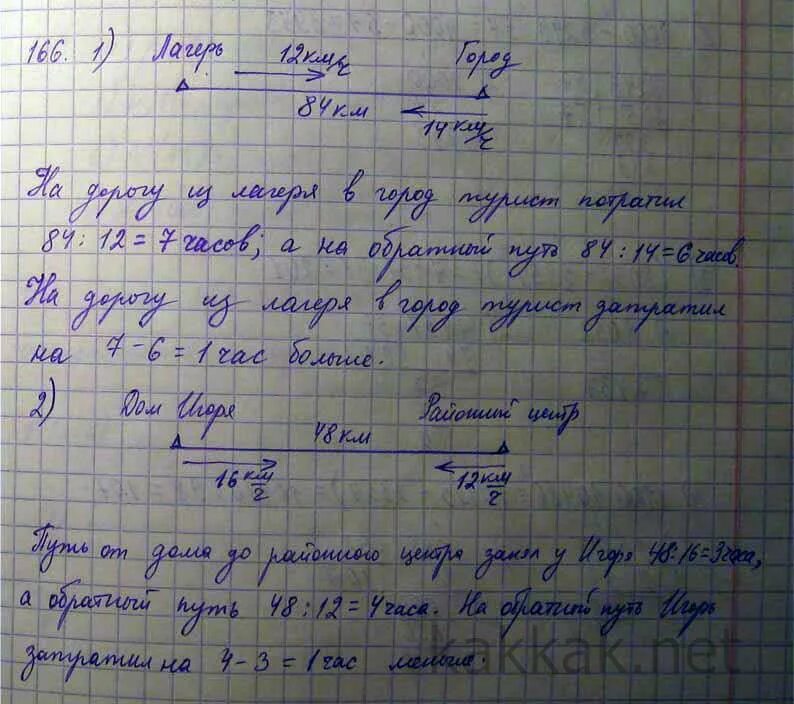 166. 1) Лагерь 12 км/ч Город
84 км
14 км/ч
На дорогу из лагеря в город турист потратил
84 : 12 = 7 часов; а на обратный путь 84 : 14 = 6 часов.
На дорогу из лагеря в город турист затратил
на 7 - 6 = 1 час больше.
2) Дом Игоря Районный центр
48 км
16 км/ч 12 км/ч
Путь от дома до районного центра занял у Игоря 48:16=3 часа,
а обратный путь 48 : 12 = 4 часа. На обратный путь Игорь
затратил на 4 - 3 = 1 час меньше.
kakkak.net